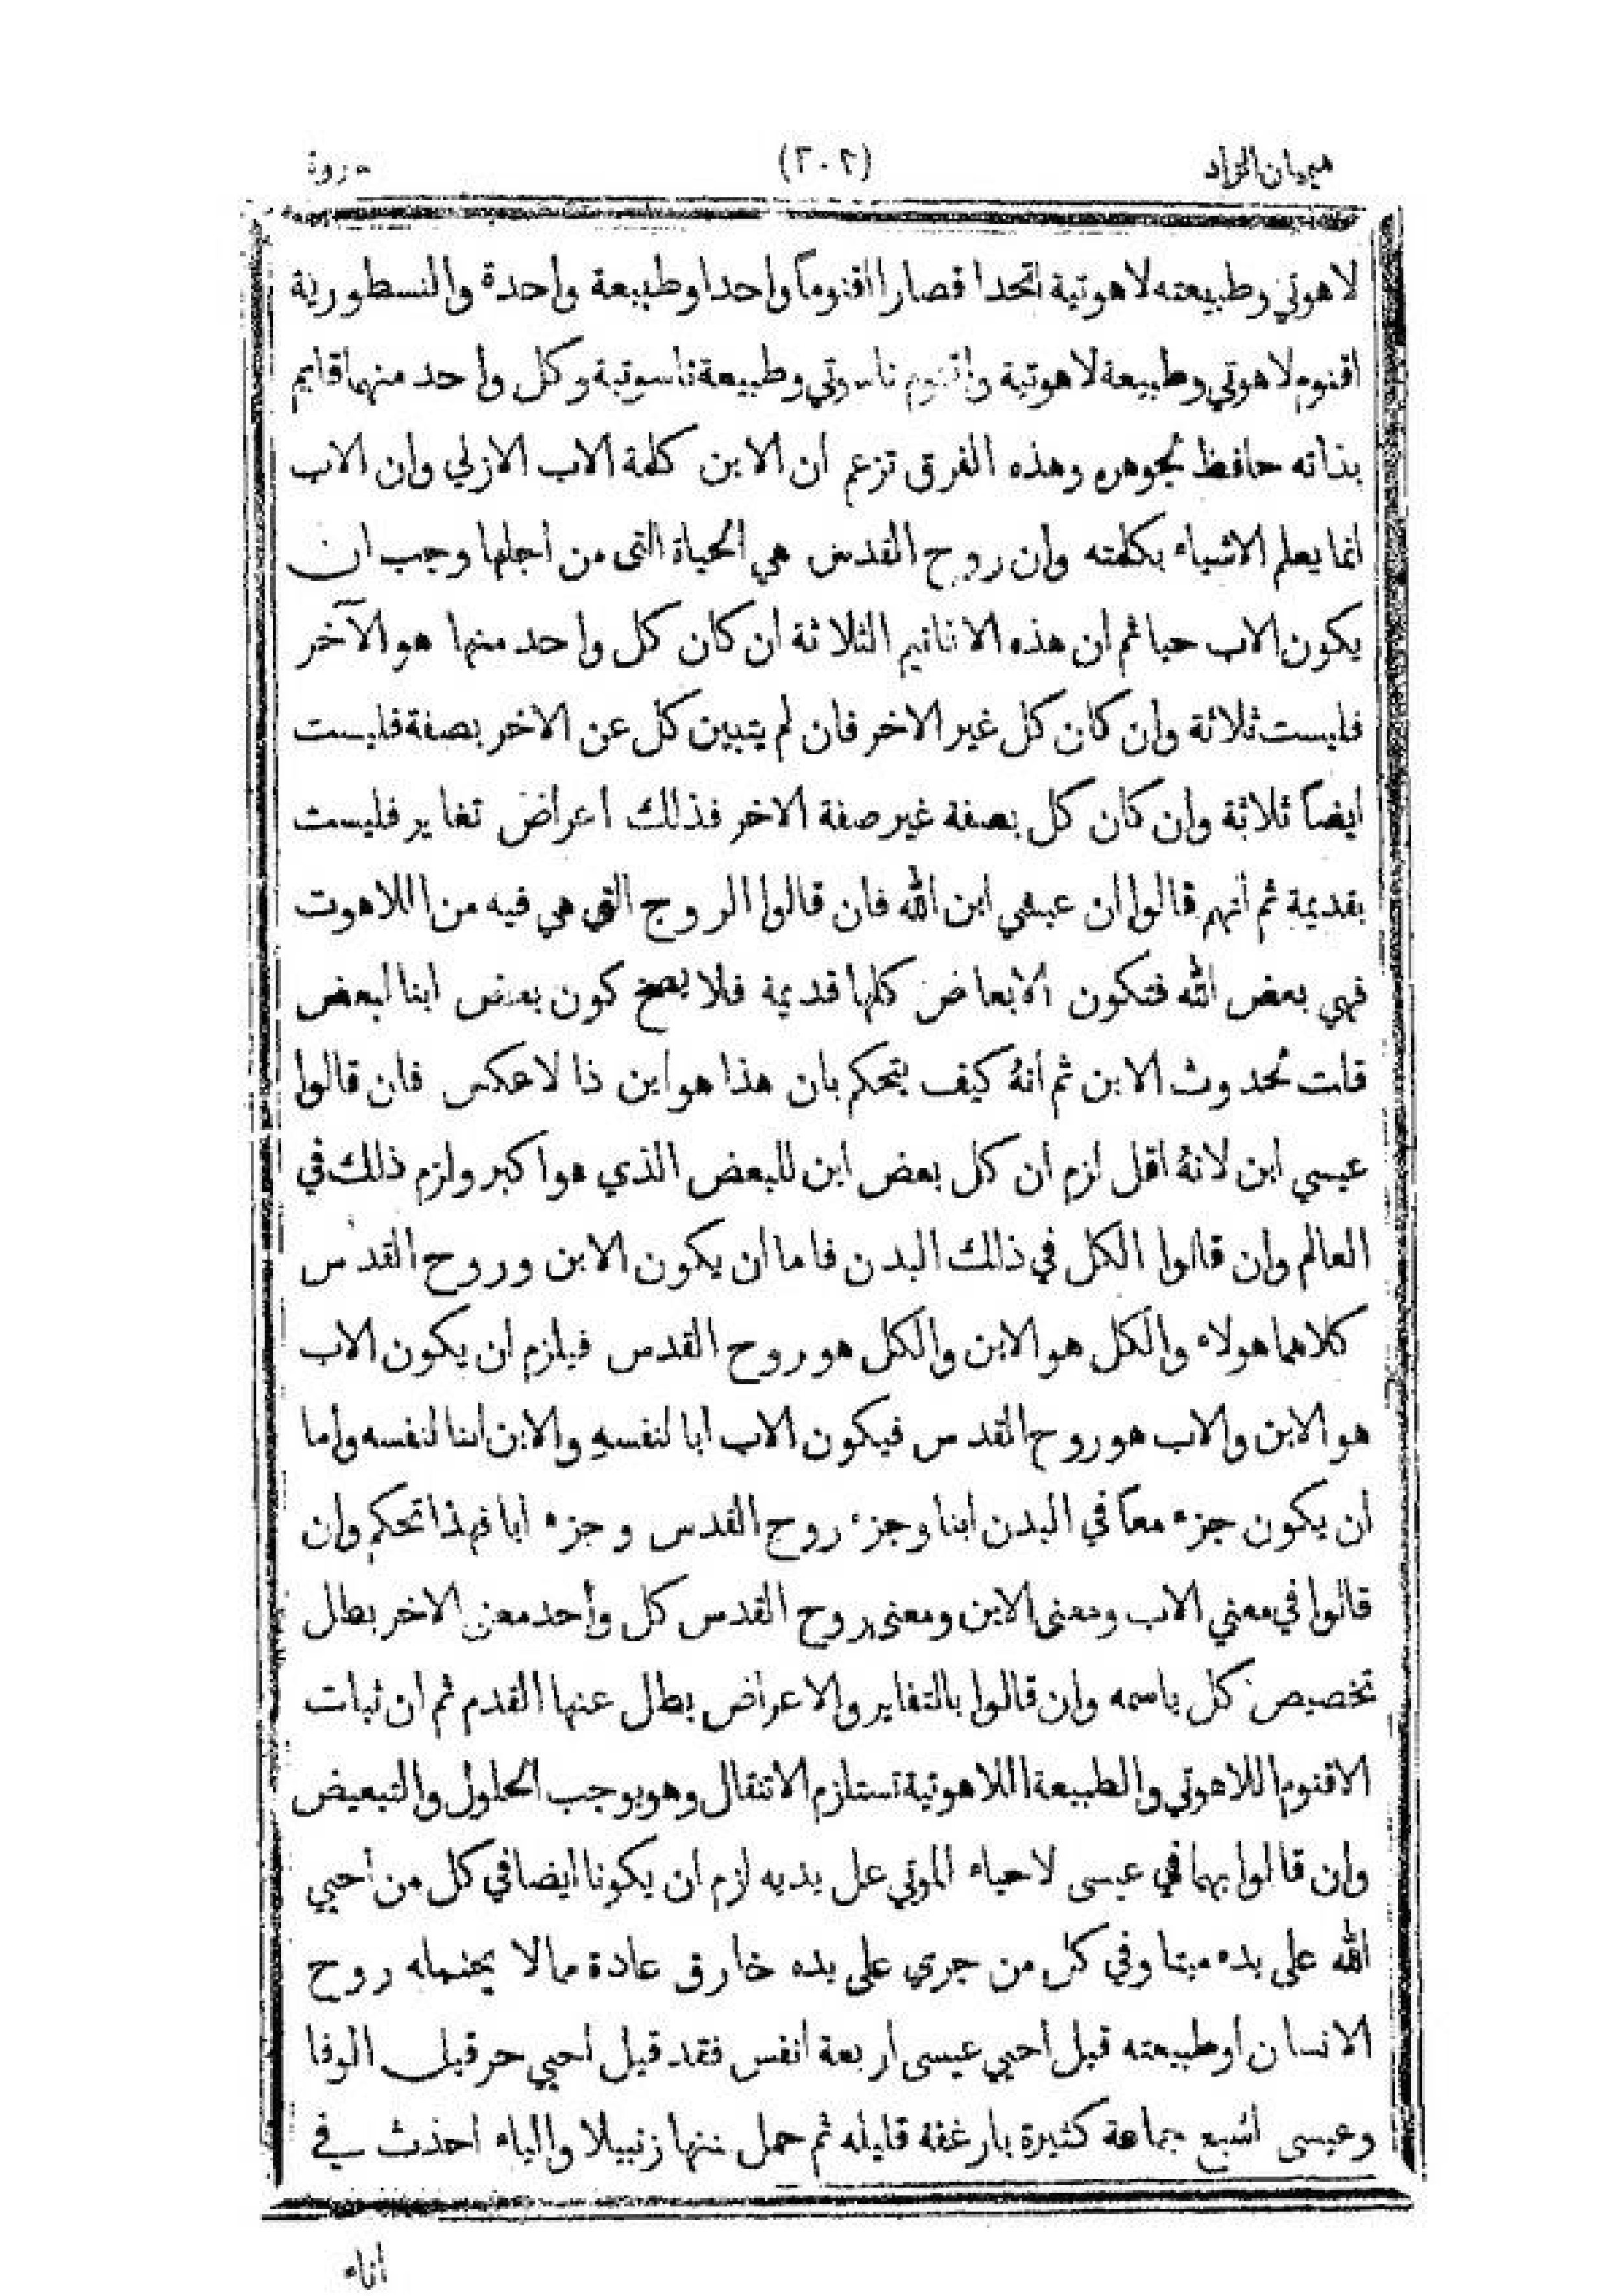 هميان الزاد (٢٠٢)
لاهوتي وطبيعته لاهوتية اتحدا فصارا اقنوماً واحدا وطبيعة واحدة والنسطورية
اقنوم لاهوتي وطبيعة لاهوتية واقنوم ناسوتي وطبيعة ناسوتية وكل واحد منهما قايم
بذاته حافظ لجوهره وهذه الفرق تزعم ان الابن كلمة الاب الازلي وان الاب
انما يعلم الاشياء بكلمته وان روح القدس هي الحياة التى من اجلها وجب ان
يكون الاب حيا ثم ان هذه الاقانيم الثلاثة ان كان كل واحد منها هو الآخر
فليست ثلاثة وان كان كل غير الاخر فان لم يتبين كل عن الاخر بصفة فليست
ايضاً ثلاثة وان كان كل بصفة غير صفة الاخر فذلك اعراض تغاير فليست
بقديمة ثم أنهم قالوا ان عيسي ابن الله فان قالوا الروح التي هي فيه من اللاهوت
فهي بعض الله فتكون الابعاض كلها قديمة فلا يصح كون بعض ابنا لبعض
قلت لحدوث الابن ثم انهُ كيف يتحكم بان هذا هو ابن ذا لا عكس فان قالوا
عيسي ابن لانهُ اقل لزم ان كل بعض ابن للبعض الذي هو اكبر ولزم ذلك في
العالم وان قالوا الكل في ذلك البدن فاما ان يكون الابن وروح القدس
كلاهما هولاء والكل هو الابن والكل هو روح القدس فيلزم ان يكون الاب
هو الابن والاب هو روح القدس فيكون الاب ابا لنفسهِ والابن ابنا لنفسه واما
ان يكون جزء معاً في البدن ابنا وجزء روح القدس وجزء ابا فهذا تحكم وان
قالوا في معني الاب ومعنى الابن ومعنى روح القدس كل واحد معن الاخر بطل
تخصيص كل باسمه وان قالوا بالتغاير والاعراض بطل عنها القدم ثم ان ثبات
الاقنوم اللاهوتي والطبيعة اللاهوتية تستلزم الانتقال وهو يوجب الحلول والتبعيض
وان قالوا بهما في عيسى لاحياء الموتي على يديه لزم ان يكونا ايضا في كل من أحيي
الله على يده ميتا وفي كل من جري على يده خارق عادة مما لا يحتمله روح
الانسان او طبيعته قيل أحيي عيسى اربعة انفس فقد قيل احيي حزقيل الوفا
وعيسى اشبع جماعة كثيرة بارغفة قليله ثم حمل منها زنبيلا والياء اخذت في
اناء